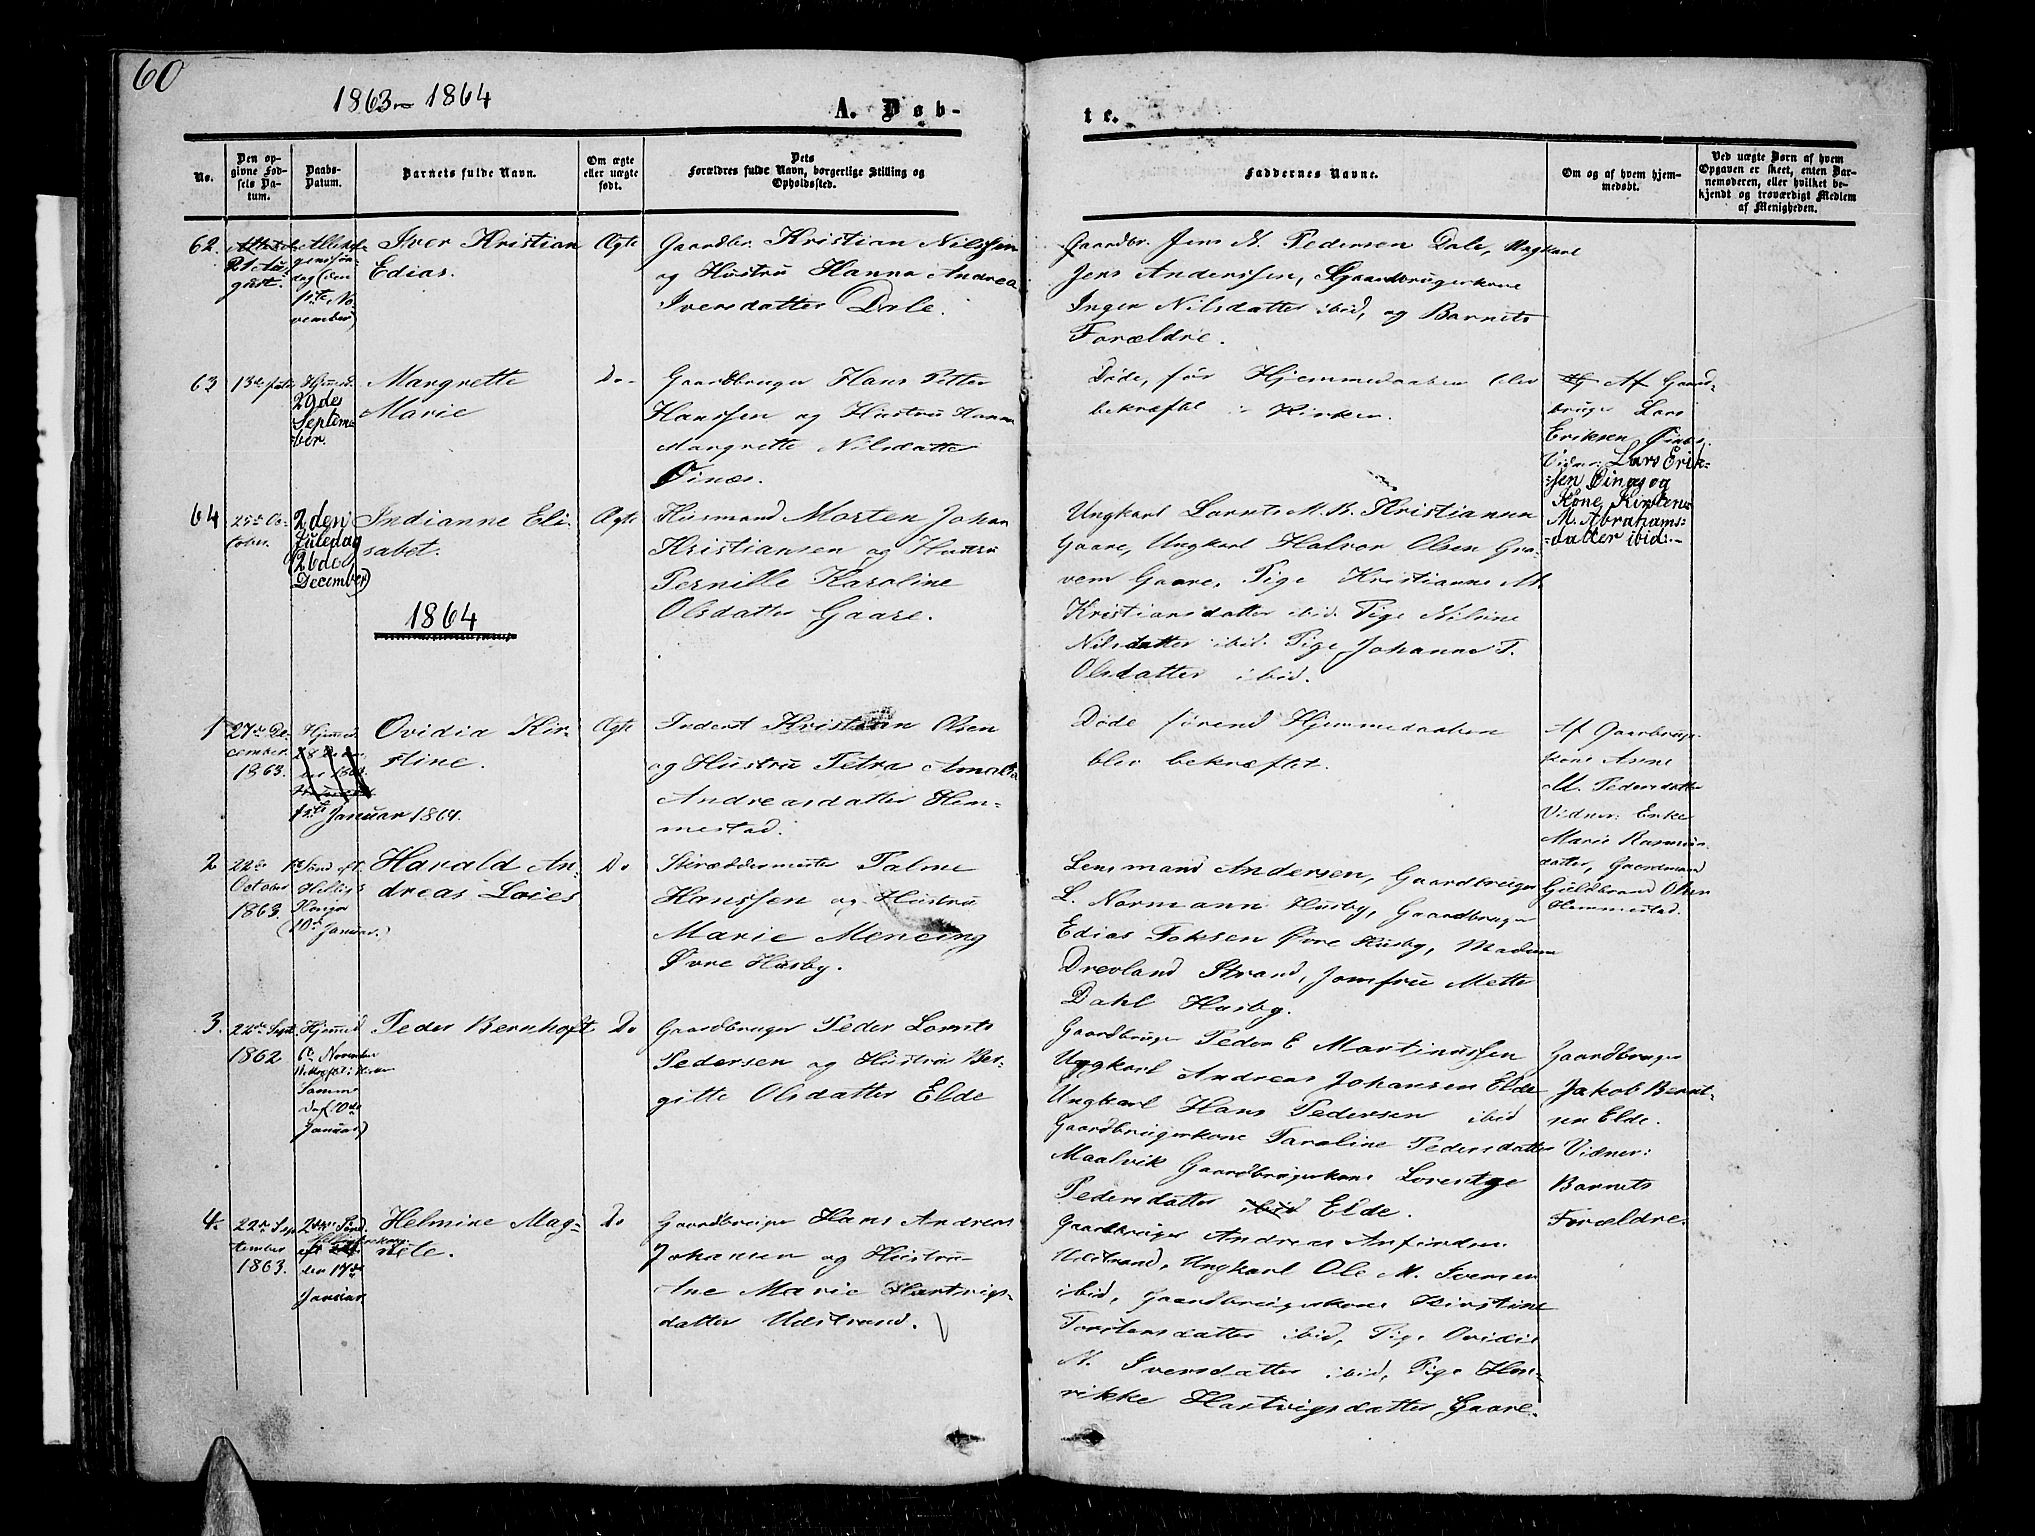 60
1863 - 1864
A. Døb-
te.
No.
Den op-
givne Fød-
sels Da-
tum.
Daabs-
Datum.
Barnets fulde Navn.
Om ægte
eller uægte
født.
Dets
Forældres fulde Navn, borgerlige Stilling og
Opholdssted.
Faddernes Navne.
Om og af hvem hjem-
medøbt.
Ved uægte Børn af hvem
Opgaven er skeet, enten Bar-
nemoderen, eller hvilket be-
kjendt og troværdigt Medlem
af Menigheden.
62.
21 Au-
gust.
Allehel-
genssøn-
dag (den
1ste No-
vember)
Iver Kristian
Edias.
Ægte
Gaardbr. Kristian Nilssen
og Hustru Hanna Andrea
Iversdatter Dale.
Gaardbr. Jens N. Pedersen Dale, Ungkarl
Jens Anderssen, Gaardbrugerkone
Inger Nilsdatter ibid, og Barnets
Forældre.
63
13de
Hjemmed.
29de
Septem-
ber.
Margrette
Marie
Do-
Gaardbruger Hans Petter
Hanssen og Hustru Hanna
Margrette Nilsdatter
Øines.
Døde, før Hjemmedaaben blev
bekræftet i Kirken.
Af Gaard-
bruger Lars
Eriksen Øines.
Vidner: Lars Erik-
-sen Øines og
Kone Kirstene
M. Abrahams-
-datter ibid.-
64
25de Oc-
tober.
2den
Juledag
(26de
December)
Indianne Eli-
sabet.
Ægte
Husmand Morten Johan
Kristiansen og Hustru
Pernille Karoline
Olsdatter Gaare.
Ungkarl Lornts M. B. Kristiansen
Gaare, Ungkarl Halvor Olsen Gra-
vem Gaare, Pige Kristianne M
Kristiansdatter ibid. Pige Nilsine
Nilsdatter ibid. Pige Johanna T.
Olsdatter ibid.
1864
1
27de De-
cember
1863.
Hjemmed.
1ste Januar 1864.
Ovidia Kir-
stine.
Ægte
Inderst Kristian Olsen
og Hustru Petra Amalia
Andreasdatter Hem-
mestad.
Døde førend Hjemmedaaben
blev bekræftet.
Af Gaardbruger-
kone Asene
M. Pedersdatter
Vidner: Enke
Marie Rasmus-
datter, Gaardmand
Guldbrand Olsen
Hemmestad.
2
22de
October
1863.
1ste Sønd. eft.
Hellig 3
Konger
(10de Januar.)
Harald An-
dreas Loies
Do
Skræddermester Palme
Hanssen og Hustru
Marie Mencing
Øvre Husby.
Lensmand Andersen, Gaardbruger
L. Normann Husby, Gaardbruger
Edias Foksen Øvre Husby, Madam
Drevland Strand, Jomfru Mette
Dahl Husby.
3.
22de Sept.
1862
Hjemmed
6te November
Bekræftet i Kirken
Samme
Dag (10de
Januar)
Peder Bernhoft
Do
Gaardbruger Peder Lornts
Pedersen og Hustru Ber-
gitte Olsdatter Elde
Gaardbruger Peder E Martinussen
Ungkarl Andreas Johansen Elde
Ungkarl Hans Pedersen ibid
Gaardbrugerkone Karoline Pedersdatter
Maalvik Gaardbrugerkone Lorentze
Pedersdatter ibid Elde.
Gaardbruger
Jakob Bernt-
sen Elde.
Vidner:
Barnets
Forældre.
4.
22de Sep-
tember
1863.
2den Sønd.
eft
den 17de
Januar
Helmine Mag-
nete.
Do
Gaardbruger Hans Andreas
Johansen og Hustru
Ane Marie Hartvigs-
datter Udstrand.
Gaardbruger Andreas Anfindsen
Udstrand, Ungkarl Ole M. Iversen
ibid, Gaardbrugerkone Kirstine
Torstensdatter ibid, Pige Ovidia
N. Iversdatter ibid, Pige Hen-
rikke Hartvigsdatter Gaare.